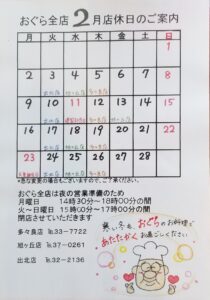 おぐら全店2月店休日のご案内
月 火 水 木 金 土 日
1
2 3 4 5 6 7 8
9 10 11 12 13 14 15
16 17 18 19 20 21 22
23 24 25 26 27 28
*急な変更の場合もございますので、ご了承ください。
おぐら全店は夜の営業準備のため
月曜日 14時30分〜18時00分の間
火〜日曜日 15時00分〜17時00分の間
閉店させていただきます
多々良店 ℡33−7722
旭ヶ丘店 ℡37−0261
出北店 ℡32−2136
寒い冬も、おぐらのお料理で
あたたかくお過ごしください